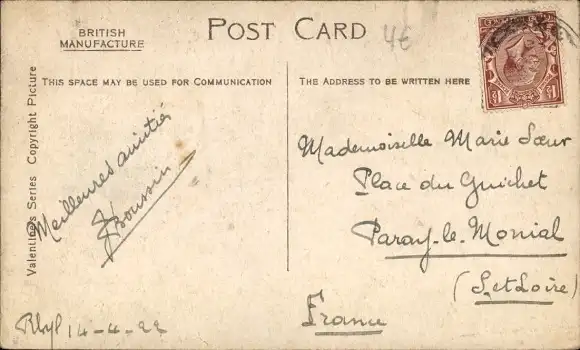 BRITISH
MANUFACTURE
POST CARD
4€
THIS SPACE MAY BE USED FOR COMMUNICATION
THE ADDRESS TO BE WRITTEN HERE
Valentine's Series Copyright Picture
Meilleures amitiés
Boussin
Rhyl 14-4-22
Mademoiselle Marie Sœur
Place du Guichet
Paray-le-Monial
(S. et Loire)
France